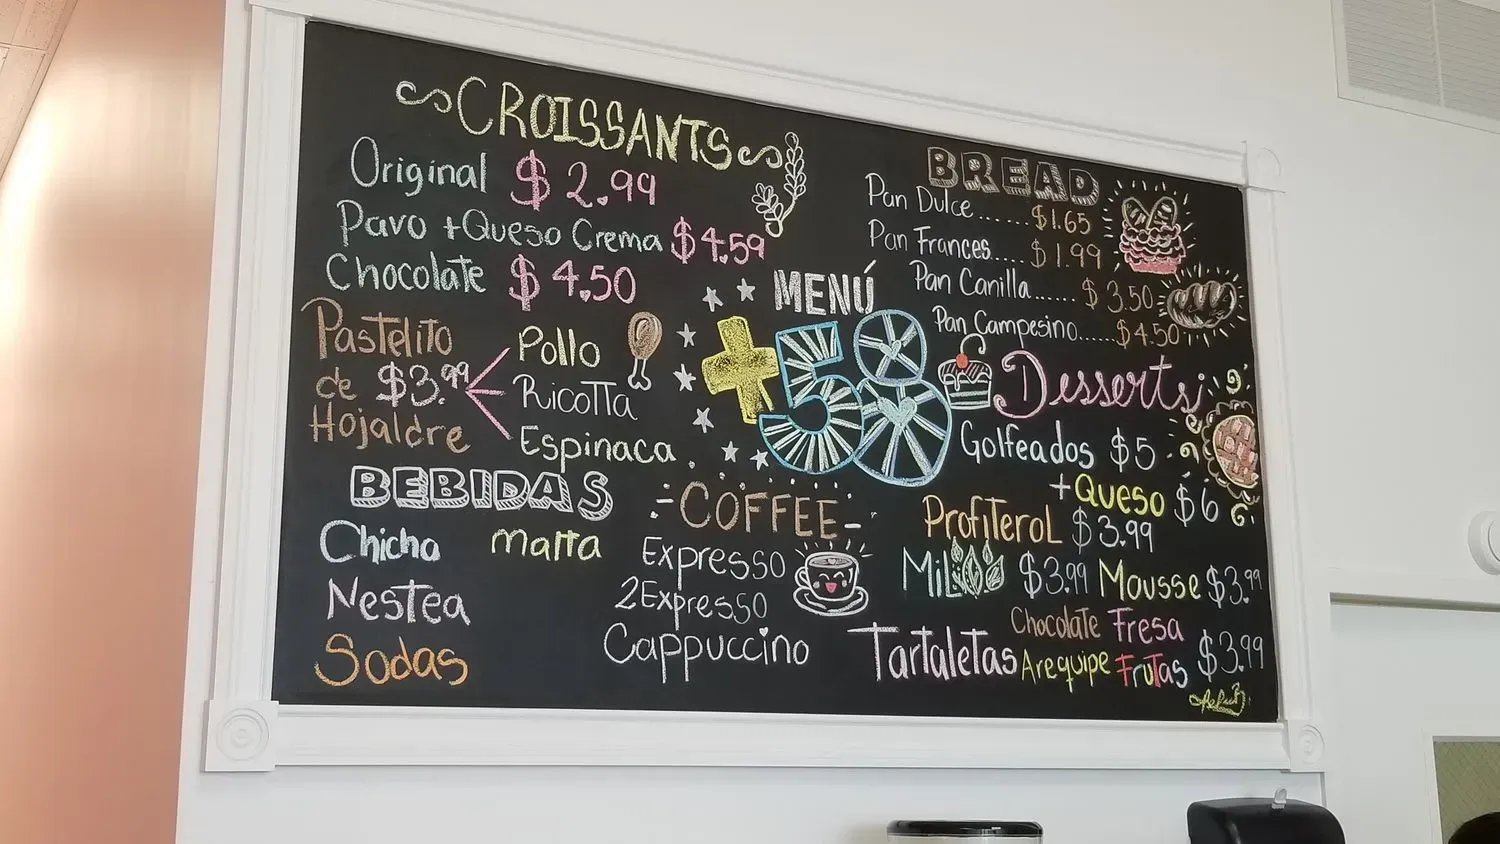 CROISSANTS
Original $2.99
Pavo +Queso Crema $4.59
Chocolate $4.50
Pastelito
de $3.99
Hojaldre
Pollo
Ricotta
Espinaca
BEBIDAS
Chicha Malta
Nestea
Sodas
MENÚ
+58
COFFEE
Expresso
2Expresso
Cappuccino
BREAD
Pan Dulce...... $1.65
Pan Frances..... $1.99
Pan Canilla...... $3.50
Pan Campesino...... $4.50
Desserts
Golfeados $5
+Queso $6
Profiterol $3.99
Mil $3.99 Mousse $3.99
Chocolate Fresa
Tartaletas Arequipe Frutas $3.99